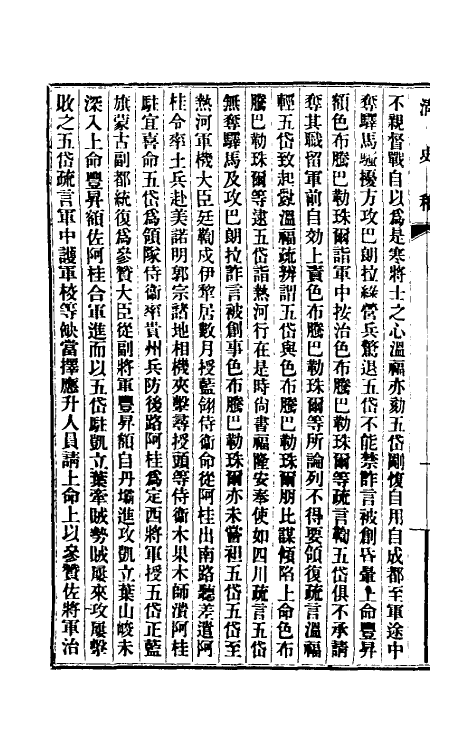 清史稿
不親督戰自以爲是寒將士之心溫福亦劾五岱剛愎自用自成都至軍途中
奪驛馬騷擾方攻巴朗拉綠營兵驚退五岱不能禁詐言被創昏暈上命豐昇
額色布騰巴勒珠爾詣軍中按治色布騰巴勒珠爾等疏言鞫五岱俱不承請
奪其職留軍前自効上責色布騰巴勒珠爾等所論列不得要領復疏言溫福
輕五岱致起釁溫福疏辨謂五岱與色布騰巴勒珠爾朋比謀傾陷上命色布
騰巴勒珠爾等逮五岱詣熱河行在是時尚書福隆安奉使如四川疏言五岱
無奪驛馬及攻巴朗拉詐言被創事色布騰巴勒珠爾亦未嘗袒五岱五岱至
熱河軍機大臣廷鞫戍伊犂居數月授藍翎侍衛命從阿桂出南路聽差遣阿
桂令率土兵赴美諾明郭宗諸地相機夾擊尋授頭等侍衛木果木師潰阿桂
駐宜喜命五岱爲領隊侍衛率貴州兵防後路阿桂爲定西將軍授五岱正藍
旗蒙古副都統復爲參贊大臣從副將軍豐昇額自丹壩進攻凱立葉山峻未
深入上命豐昇額佐阿桂合軍進而以五岱駐凱立葉牽賊勢賊屢來攻屢擊
敗之五岱疏言軍中護軍校等缺當擇應升人員請上命上以參贊佐將軍治